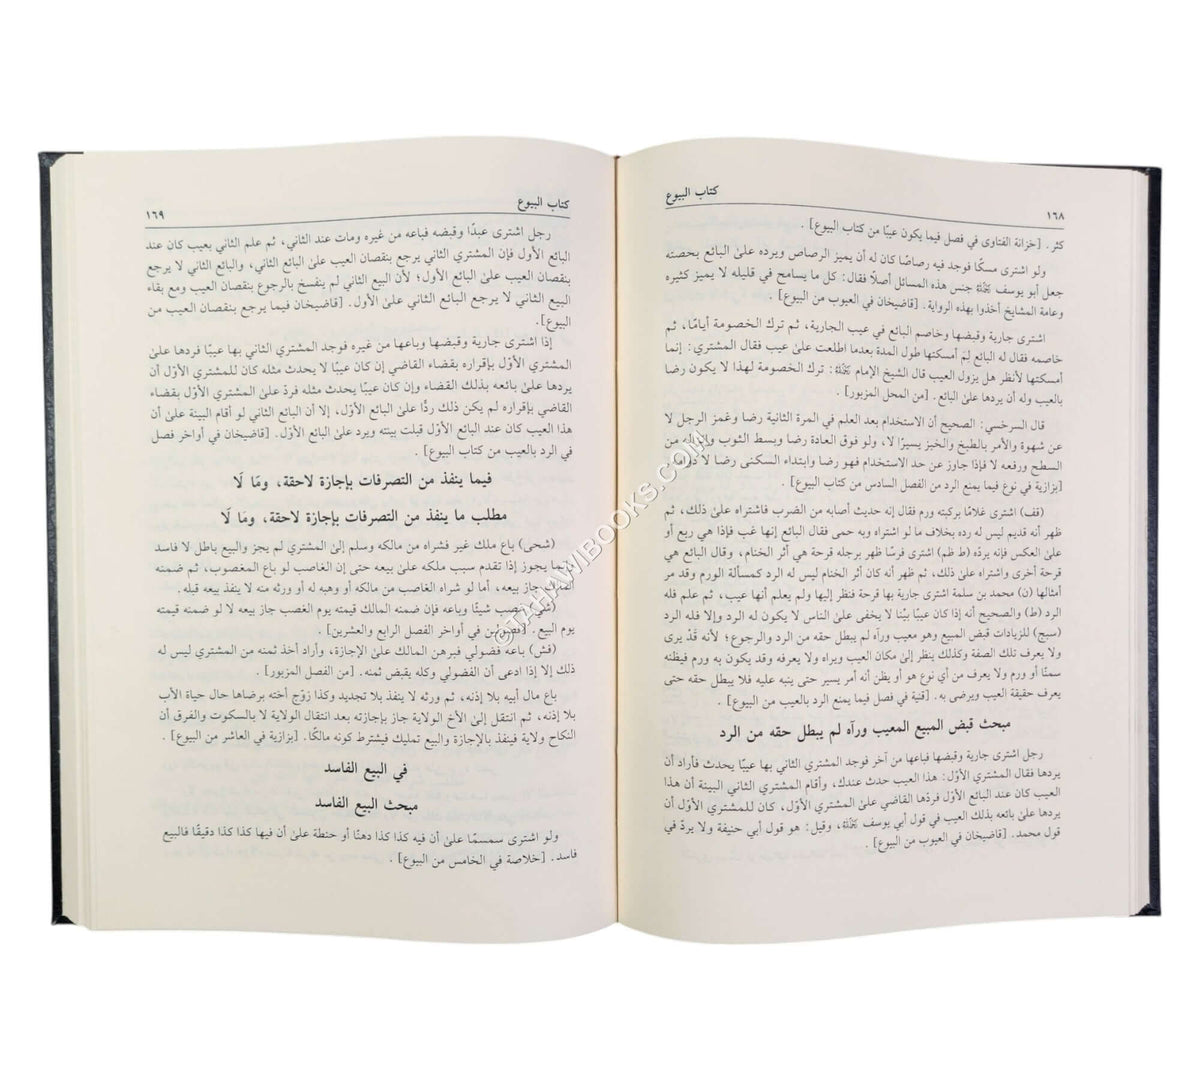 كتاب البيوع
١٦٨
كثر. [خزانة الفتاوى في فصل فيما يكون عيبًا من كتاب البيوع].
ولو اشترى مسكًا فوجد فيه رصاصًا كان له أن يميز الرصاص ويرده على البائع بحصته
جعل أبو يوسف رحمه الله جنس هذه المسائل أصلًا فقال: كل ما يسامح في قليله لا يميز كثيره
وعامة المشايخ أخذوا بهذه الرواية. [قاضيخان في العيوب من البيوع].
اشترى جارية وقبضها وخاصم البائع في عيب الجارية، ثم ترك الخصومة أيامًا، ثم
خاصمه فقال له البائع لِمَ أمسكتها طول المدة بعدما اطلعت على عيب فقال المشتري: إنما
أمسكتها لأنظر هل يزول العيب قال الشيخ الإمام رحمه الله: ترك الخصومة لهذا لا يكون رضا
بالعيب وله أن يردها على البائع. [من المحل المزبور].
قال السرخسي: الصحيح أن الاستخدام بعد العلم في المرة الثانية رضا وغمز الرجل لا
عن شهوة والأمر بالطبخ والخبز يسيرًا لا، ولو فوق العادة رضا وبسط الثوب وإنزاله من
السطح ورفعه لا فإذا جاوز عن حد الاستخدام فهو رضا وابتداء السكنى رضا لا دوامها
[بزازية في نوع فيما يمنع الرد من الفصل السادس من كتاب البيوع].
(قف) اشترى غلامًا بركبته ورم فقال إنه حديث أصابه من الضرب فاشتراه على ذلك، ثم
ظهر أنه قديم ليس له رده بخلاف ما لو اشتراه وبه حمى فقال البائع إنها غب فإذا هي ربع أو
على العكس فإنه يردّه (ظ ظم) اشترى فرسًا ظهر برجله قرحة هي أثر الخنام، وقال البائع هي
قرحة أخرى واشتراه على ذلك، ثم ظهر أنه كان أثر الخنام ليس له الرد كمسألة الورم وقد مر
أمثالها (ن) محمد بن سلمة اشترى جارية بها قرحة فنظر إليها ولم يعلم أنها عيب، ثم علم فله
الرد (ط) والصحيح أنه إذا كان عيبًا بيّنا لا يخفى على الناس لا يكون له الرد وإلا فله الرد
(سبج) للزيادات قبض المبيع وهو معيب ورآه لم يبطل حقه من الرد والرجوع؛ لأنه قَدْ يرى
ولا يعرف تلك الصفة وكذلك ينظر إلى مكان العيب ويراه ولا يعرفه وقد يكون به ورم فيظنه
سمنًا أو ورم ولا يعرف من أي نوع هو أو يظن أنه أمر يسير حتى ينبه عليه فلا يبطل حقه حتى
يعرف حقيقة العيب ويرضى به. [قنية في فصل فيما يمنع الرد بالعيب من البيوع].
مبحث قبض المبيع المعيب ورآه لم يبطل حقه من الرد
رجل اشترى جارية وقبضها فباعها من آخر فوجد المشتري الثاني بها عيبًا يحدث فأراد أن
يردها فقال المشتري الأوّل: هذا العيب حدث عندك، وأقام المشتري الثاني البينة أن هذا
العيب كان عند البائع الأول فردّها القاضي على المشتري الأوّل، كان للمشتري الأوّل أن
يردها على بائعه بذلك العيب في قول أبي يوسف رحمه الله، وقيل: هو قول أبي حنيفة ولا يردّ في
قول محمد. [قاضيخان في العيوب من البيوع].
كتاب البيوع
١٦٩
رجل اشترى عبدًا وقبضه فباعه من غيره ومات عند الثاني، ثم علم الثاني بعيب كان عند
البائع الأول فإن المشتري الثاني يرجع بنقصان العيب على البائع الثاني، والبائع الثاني لا يرجع
بنقصان العيب على البائع الأول؛ لأن البيع الثاني لم ينفسخ بالرجوع بنقصان العيب ومع بقاء
البيع الثاني لا يرجع البائع الثاني على الأول. [قاضيخان فيما يرجع بنقصان العيب من
البيوع].
إذا اشترى جارية وقبضها وباعها من غيره فوجد المشتري الثاني بها عيبًا فردها على
المشتري الأوّل بإقراره بقضاء القاضي إن كان عيبًا لا يحدث مثله كان للمشتري الأوّل أن
يردها على بائعه بذلك القضاء وإن كان عيبًا يحدث مثله فردّ على المشتري الأوّل بقضاء
القاضي بإقراره لم يكن ذلك ردًّا على البائع الأوّل، إلا أن البائع الثاني لو أقام البينة على أن
هذا العيب كان عند البائع الأوّل قبلت بينته ويرد على البائع الأوّل. [قاضيخان في أواخر فصل
في الرد بالعيب من كتاب البيوع].
فيما ينفذ من التصرفات بإجازة لاحقة، ومَا لَا
مطلب ما ينفذ من التصرفات بإجازة لاحقة، ومَا لَا
(شحى) باع ملك غير فشراه من مالكه وسلم إلى المشتري لم يجز والبيع باطل لا فاسد
وإنما يجوز إذا تقدم سبب ملكه على بيعه حتى إن الغاصب لو باع المغصوب، ثم ضمنه
المالك جاز بيعه، أما لو شراه الغاصب من مالكه أو وهبه له أو ورثه منه لا ينفذ بيعه قبله.
غصب شيئًا وباعه فإن ضمنه المالك قيمته يوم الغصب جاز بيعه لا لو ضمنه قيمته
يوم البيع. [فصولين في أواخر الفصل الرابع والعشرين].
(فش) باعه فضولي فبرهن المالك على الإجازة، وأراد أخذ ثمنه من المشتري ليس له
ذلك إلا إذا ادعى أن الفضولي وكله بقبض ثمنه. [من الفصل المزبور].
باع مال أبيه بلا إذنه، ثم ورثه لا ينفذ بلا تجديد وكذا زوّج أخته برضاها حال حياة الأب
بلا إذنه، ثم انتقل إلى الأخ الولاية جاز بإجازته بعد انتقال الولاية لا بالسكوت والفرق أن
النكاح ولاية فينفذ بالإجازة والبيع تمليك فيشترط كونه مالكًا. [بزازية في العاشر من البيوع].
في البيع الفاسد
مبحث البيع الفاسد
ولو اشترى سمسمًا على أن فيه كذا كذا دهنًا أو حنطة على أن فيها كذا كذا دقيقًا فالبيع
فاسد. [خلاصة في الخامس من البيوع].
©TAHAWIBOOKS.COM